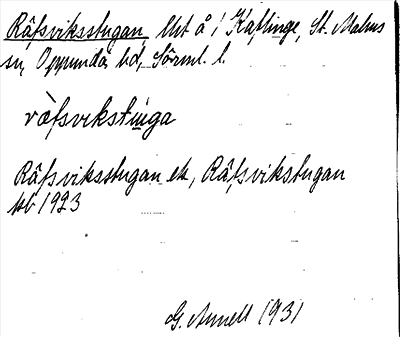 Räfsviksstugan, lht å / Kaflinge, St. Malms
sn, Oppunda hd, Sörml. l.
räfsvikstuga
Räfsviksstugan ek, Räfsvikstugan
jb 1923
G. Annell 1931